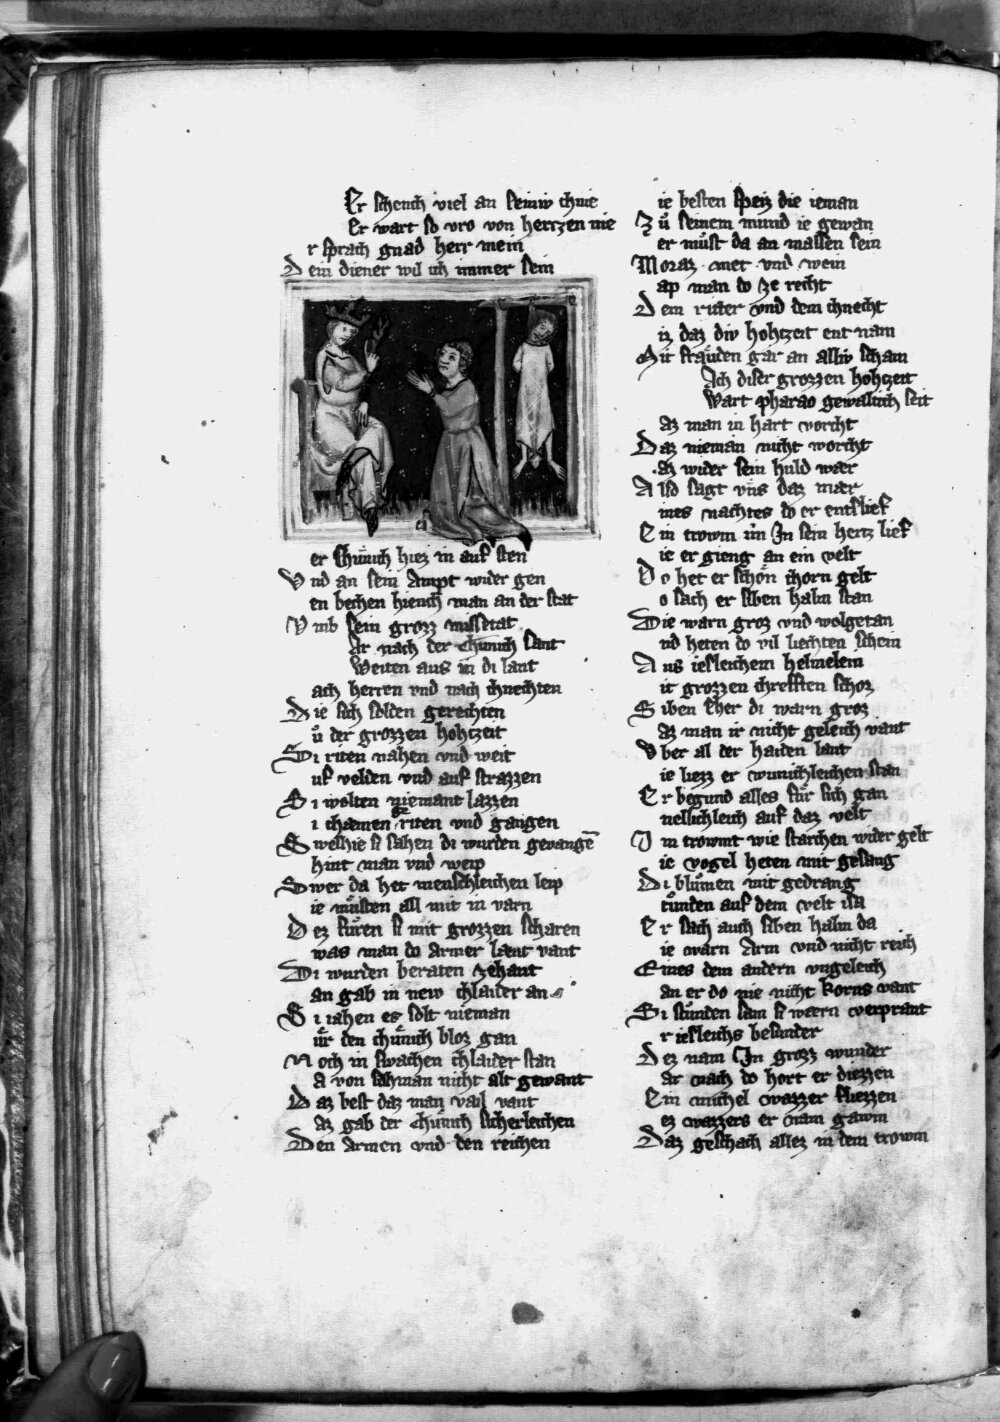 Er schench viel an seiniv chnie
Er wart so vro von herrzen nie
r sprach gnad herr mein
Dem diener wil ich immer sein
er chůnich hiez in auf sten
Vnd an sein Ampt wider gen
en bechen hiench man an der stat
Vmb sein grozz missetat
Ar nach der chůnich sant
Weiten aus in di lant
ach herren vnd nach chnechten
Die sich solden gerechten
ů der grozzen hohtzeit
Si riten nahen vnd weit
uf velden vnd auf strazzen
Si wolten niemant lazzen
i chæmen riten vnd gangen
Swelhie si sahen di wurden gevangē
hint man vnd weip
Swer da het menschleichen leip
ie můsten all mit in varn
Dez fůren si mit grozzen scharen
was man do armer læut vant
Di wurden beraten zehant
an gab in new chlaider an
Si iahen es solt nieman
ůr den chůnich bloz gan
Noch in swachen chlaider stan
a von sah man nicht alt gewant
Daz best daz man vail vant
az gab der chůnich sicherleichen
Den armen vnd den reichen
ie besten speiz die ieman
Zů seinem mund ie gewan
er můst da an massen sein
Moraz met vnd wein
ap man do ze recht
Dem ritter vnd dem chnecht
iz daz div hohtzeit ent nam
Mit frauden gar an alliv scham
Ach diser grozzen hohtzeit
Wart pharao gewaltich seit
az man in hart vorcht
Daz nieman nicht worcht
az wider sein huld wær
Also sagt vns daz mær
ines nachtes do er entslief
Ein trowm im In sein hertz lief
ie er gieng an ein velt
Do het er schön chorn gelt
o sach er siben halm stan
Die warn groz vnd wolgetan
nd heten do vil liechten schein
Aus iesleichem helmelein
it grozzen chrefften schoz
Siben eher di warn groz
az man ir nicht geleich vant
Vber al der haiden lant
ie liezz er wunichleichen stan
Er begund alles für sich gan
nellichleich auf daz velt
In trowmt wie starchen wider gelt
ie vogel heten mit gesang
Di blůmen mit gedrang
tůnden auf dem velt isa
Er sach auch siben halm da
ie warn Arm vnd nicht reich
Eines dem andern vngeleich
an er do nie nicht korns vant
Si stůnden sam si wærn verprant
r iesleichs besunder
Dez nam In grozz wunder
ar nach do hort er diezzen
Ein michel wazzer fliezzen
ez wazzers er nam gawm
Daz geschach allez in dem trowm